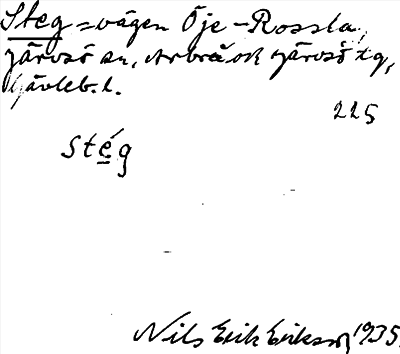 Steg = vägen Öje - Rossla,
Järvsö sn, Arbrå ok Järvsö tg,
Gävleb. l.
225
stég
Nils Erik Eriksson 1935.